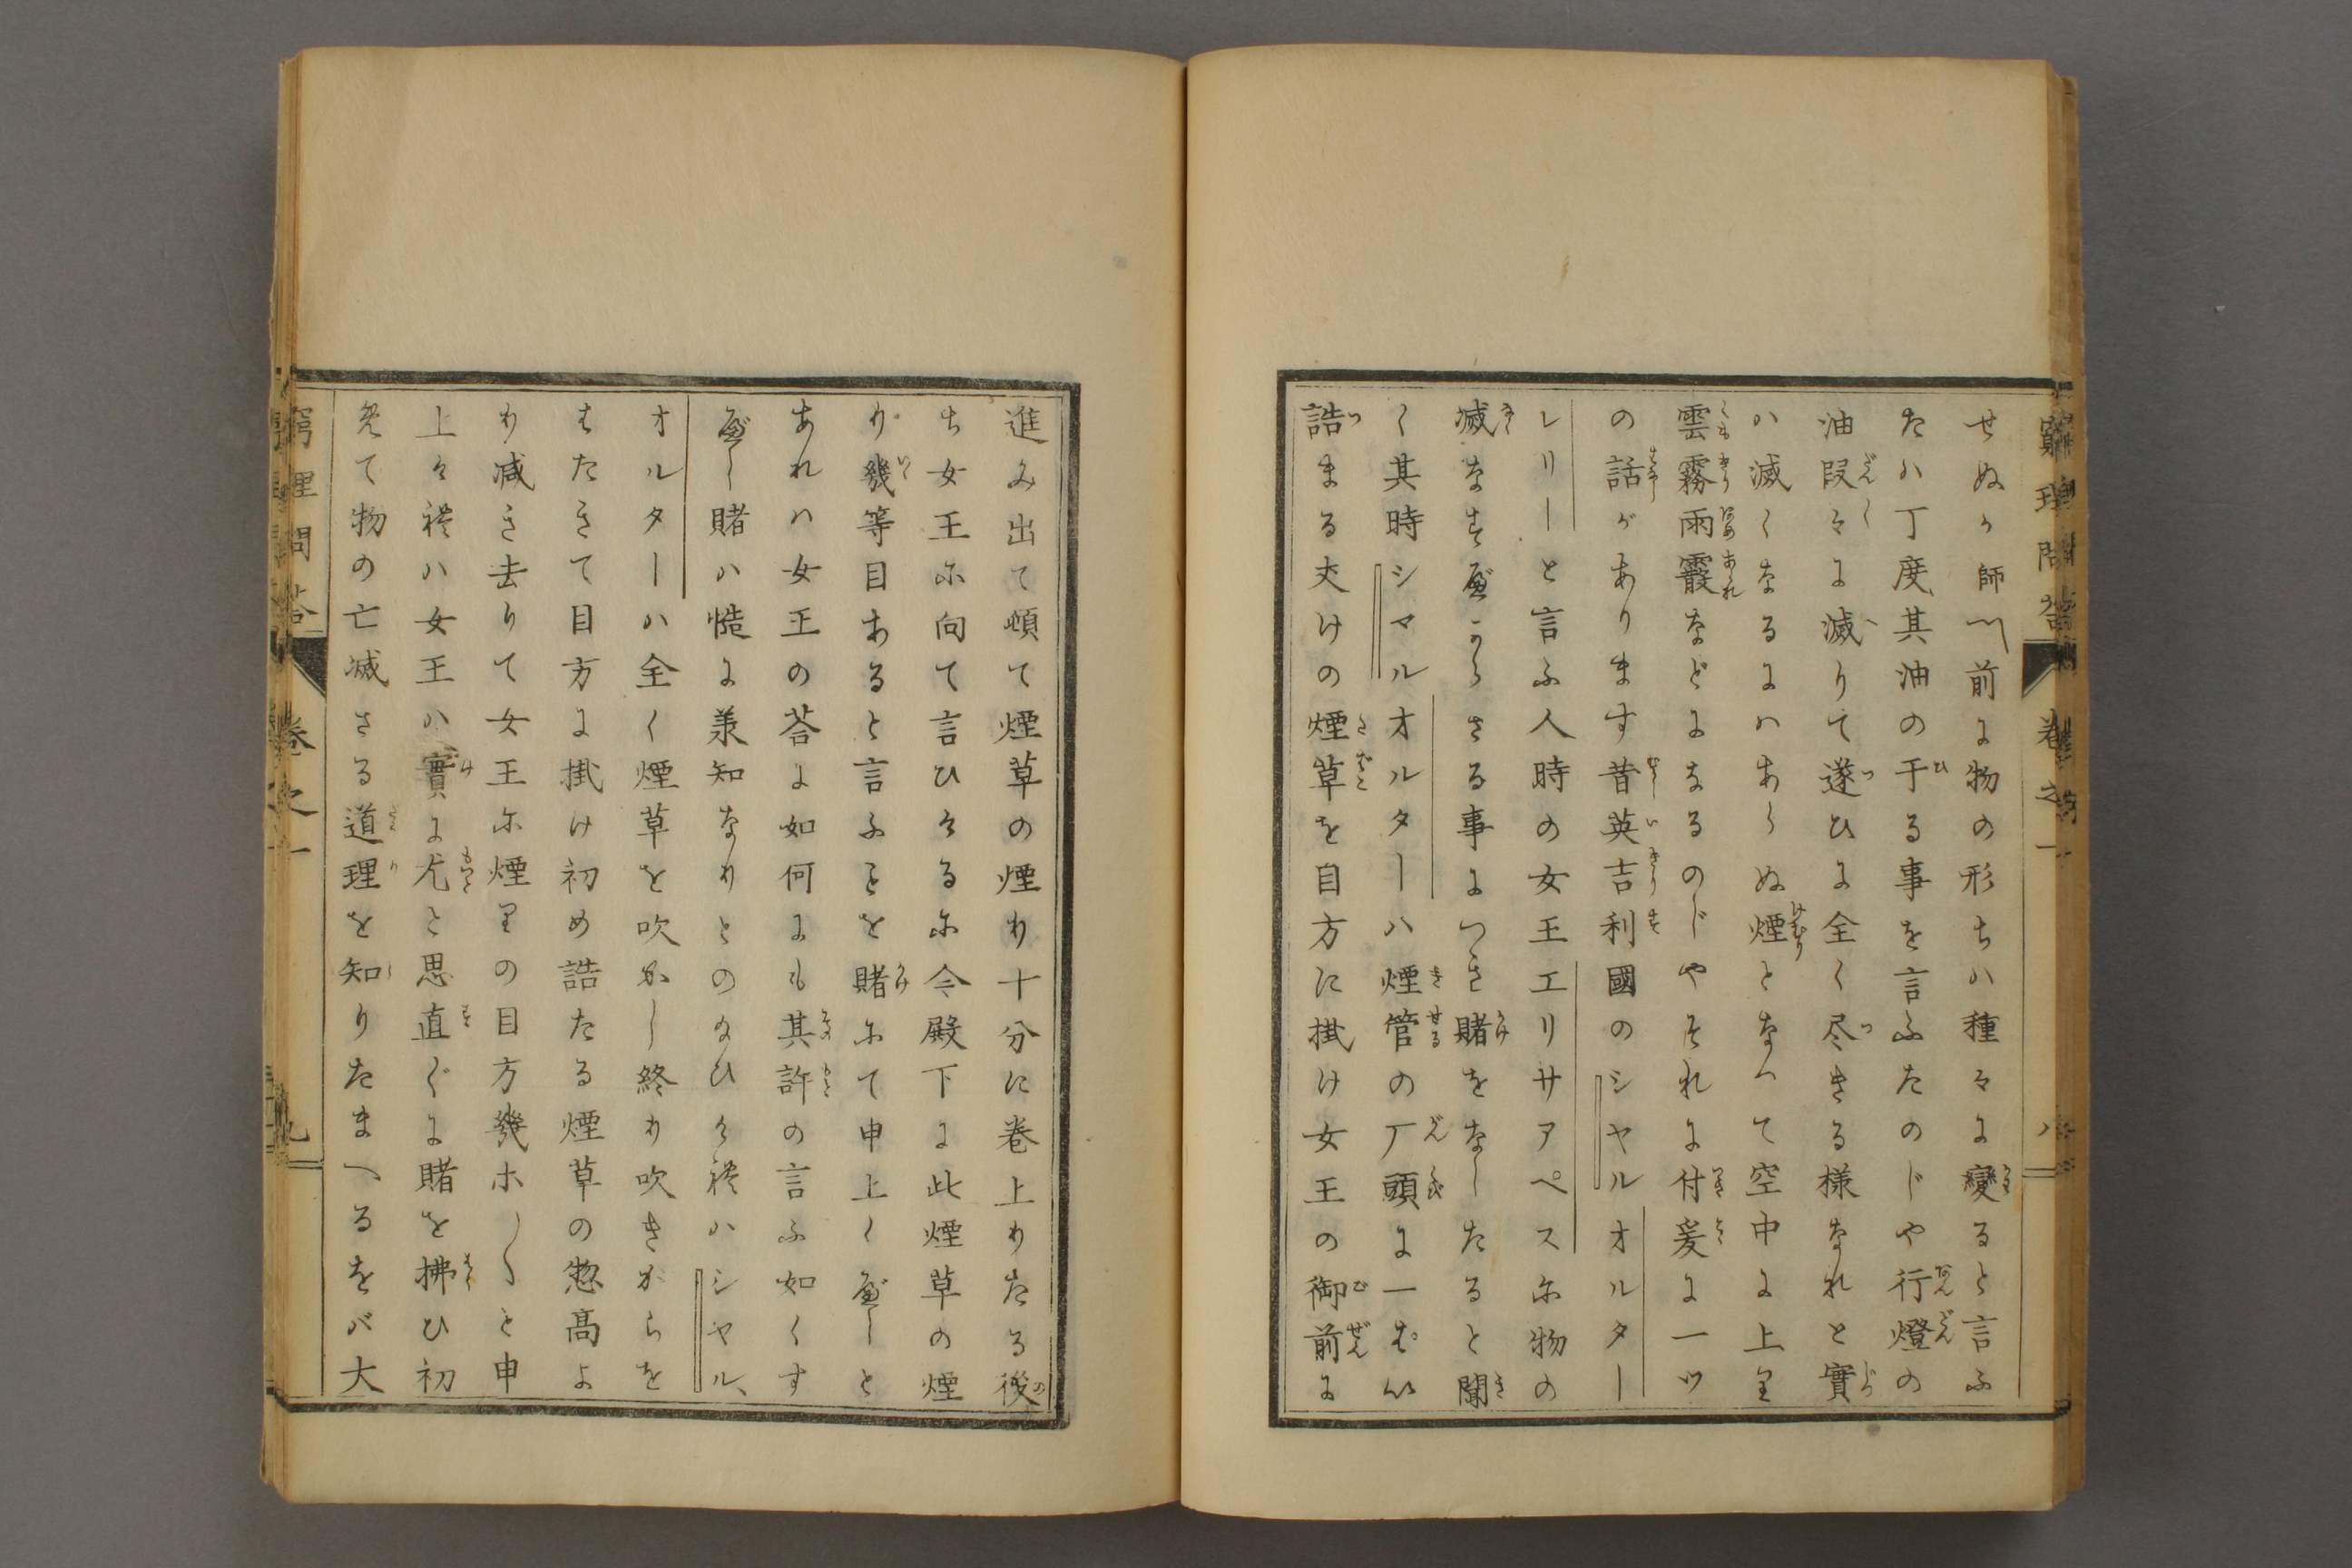 せぬか師〽前に物の形ちハ種々に變ると言ふ
たハ丁度其油の干る事を言ふたのじや行燈の
油段々に滅りて遂ひに全く尽きる様なれと實
ハ滅くなるにハあらぬ煙となつて空中に上り
雲霧雨霰などになるのじやそれに付爰に一ツ
の話があります昔英吉利國のシヤルオルター
レリーと言ふ人時の女王エリサアペスに物の
滅なす可からさる事につき賭をなしたると聞
く其時シマルオルターハ煙管の厂頭に一はい
誥まる丈けの煙草を目方に掛け女王の御前に
窮理問答 卷之一 八
進み出て頓て煙草の煙り十分に巻上りたる後
ち女王に向て言ひけるに今殿下に此煙草の煙
り幾等目あると言ふことを賭にて申上く可しと
あれハ女王の荅に如何にも其許の言ふ如くす
可し賭ハ慥に羕知なりとのたひけれハシヤル、
オルターハ全く煙草を吹かし終り吹きがらを
はたきて目方に掛け初め誥たる煙草の惣高よ
り減き去りて女王に煙りの目方幾ホ〱と申
上けれハ女王ハ實に尤と思直ぐに賭を拂ひ初
めて物の亡滅さる道理を知りたまへるをバ大
窮理問荅 卷之一 九